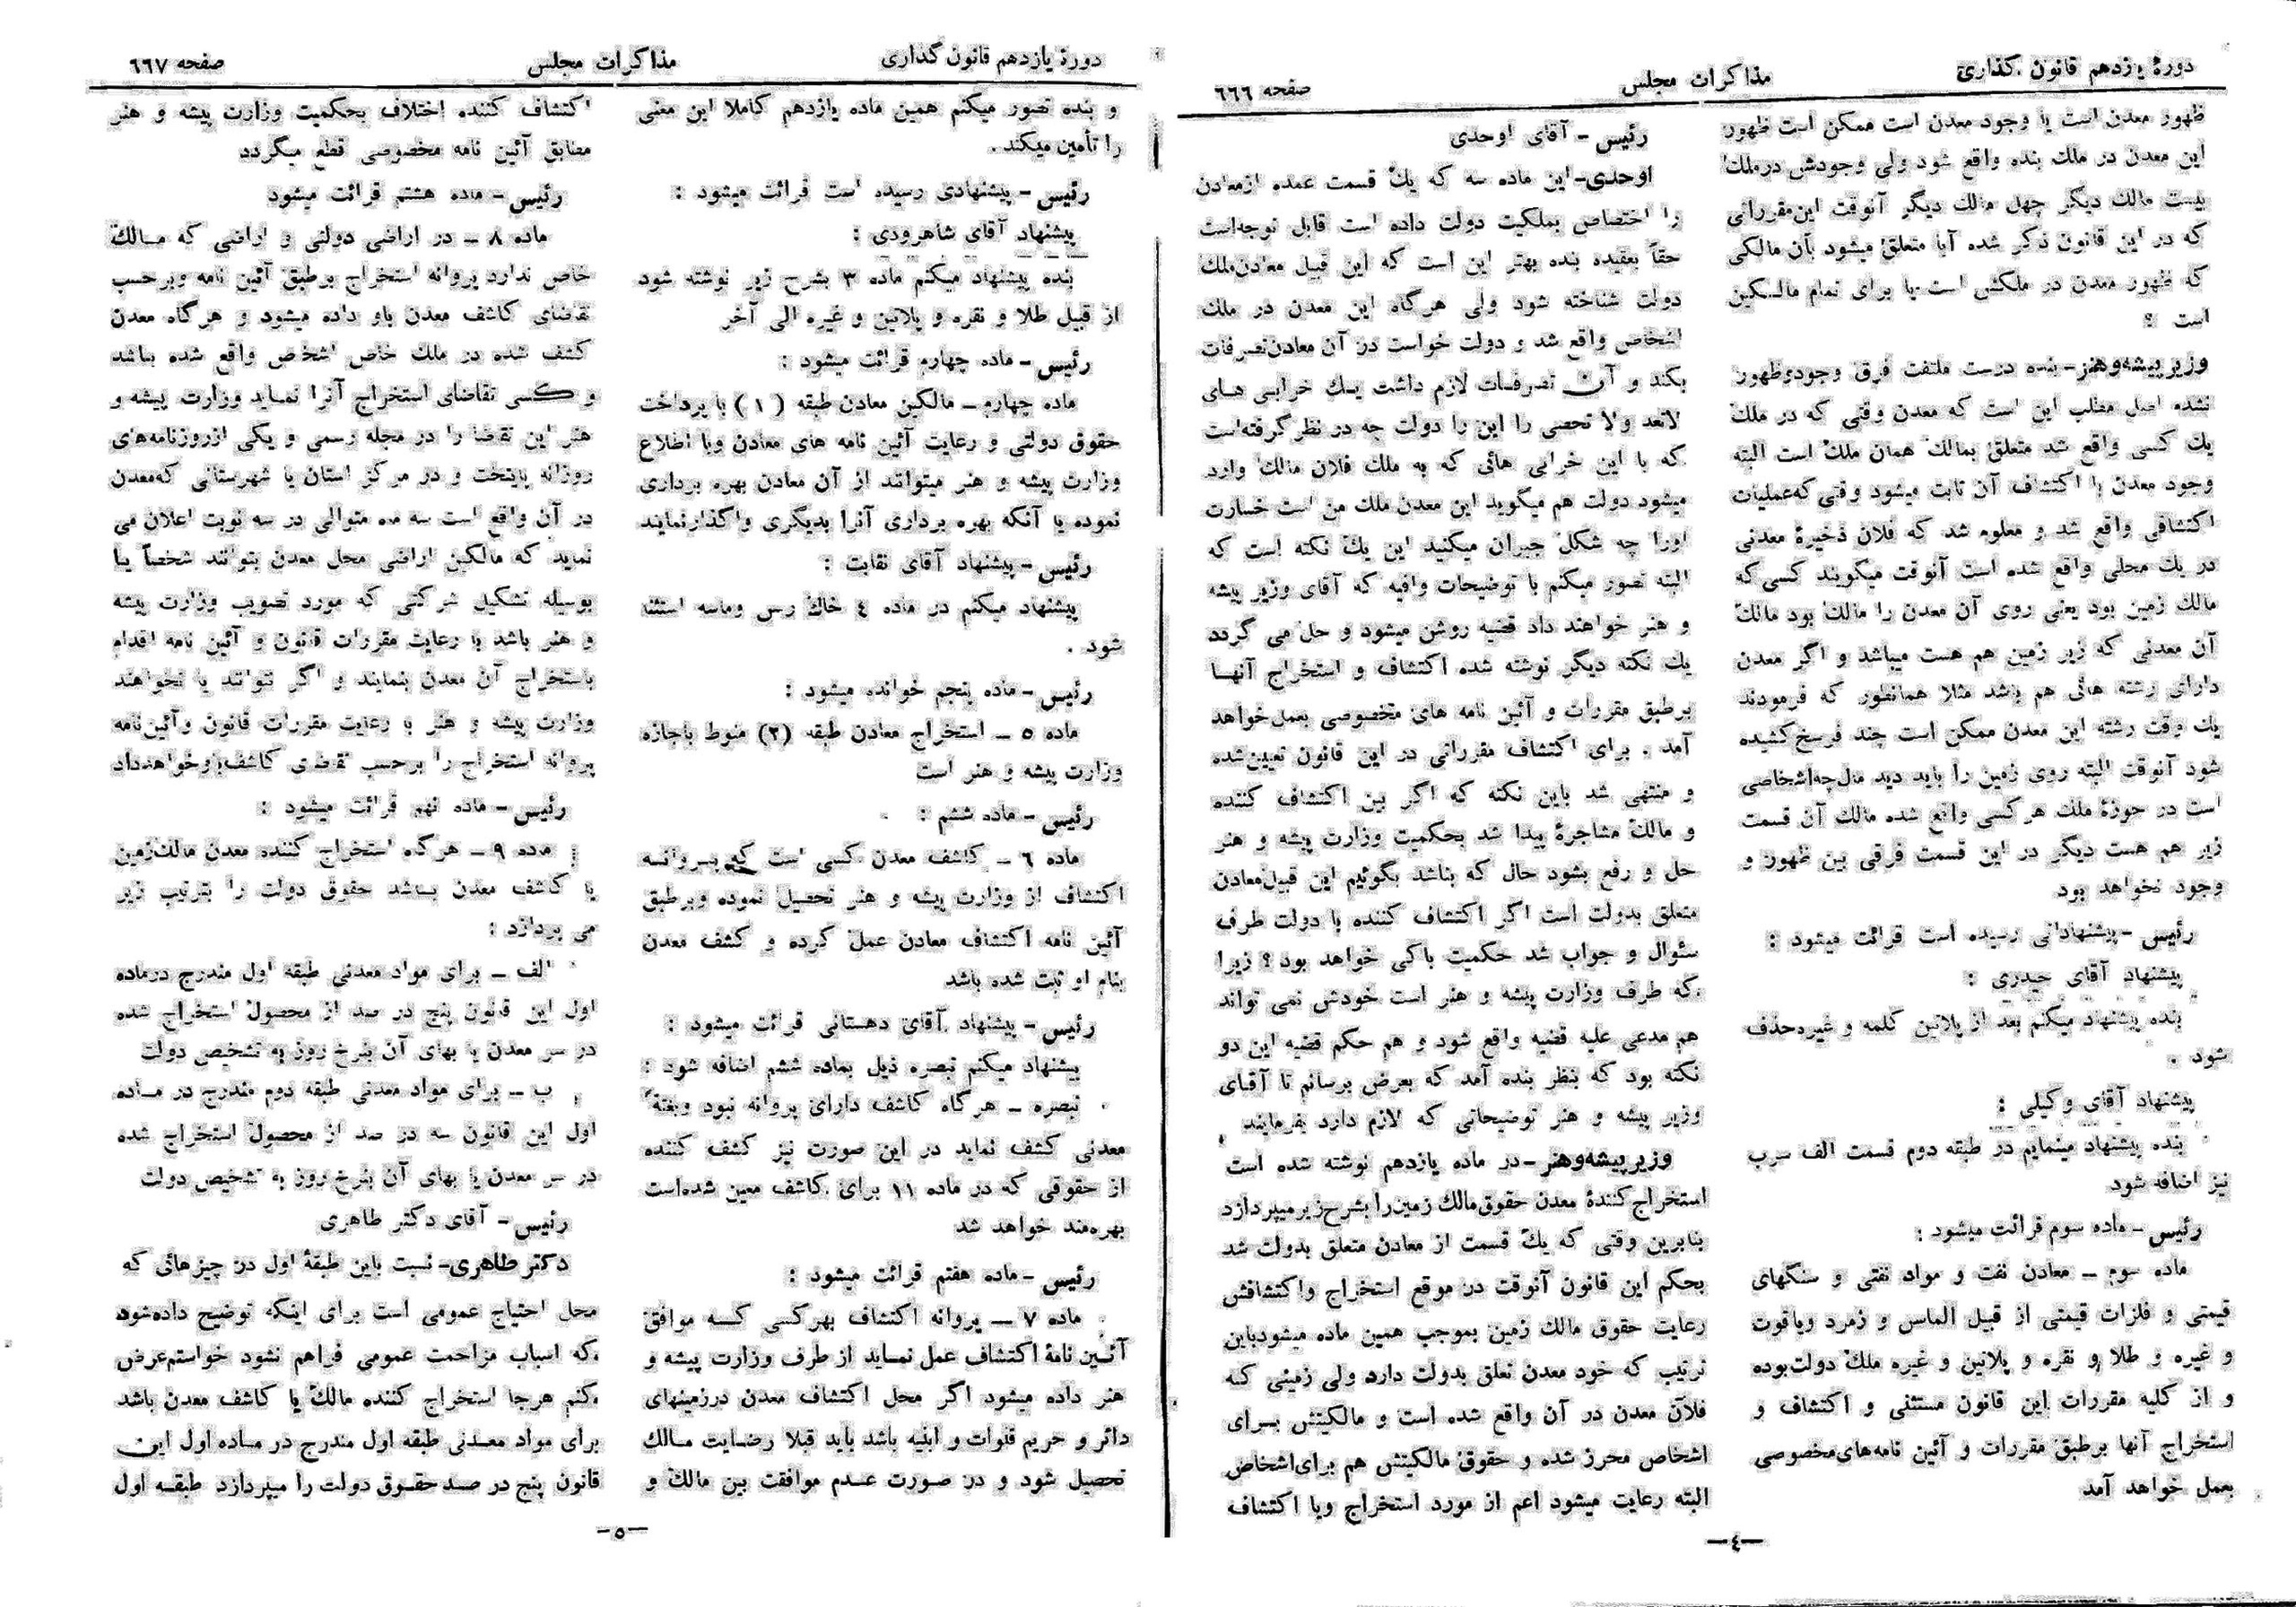 دورهٔ یازدهم قانون گذاری
مذاکرات مجلس
صفحه ٦٦٦
ظهور معدن است یا وجود معدن است ممکن است ظهور
این معدن در ملک بنده واقع شود ولی وجودش در ملک
بیست مالک دیگر چهل مالک دیگر آنوقت این مقرراتی
که در این قانون ذکر شده آیا متعلق میشود بآن مالکی
که ظهور معدن در ملکش است یا برای تمام مالکین
است ؟
وزیر پیشه و هنر - بنده درست ملتفت فرق وجود و ظهور
نشده اصل مطلب این است که معدن وقتی که در ملک
یک کسی واقع شد متعلق بمالک همان ملک است البته
وجود معدن با اکتشاف آن ثابت میشود وقتی که عملیات
اکتشافی واقع شد و معلوم شد که فلان ذخیرهٔ معدنی
در یک محلی واقع شده است آنوقت میگویند کسی که
مالک زمین بود یعنی روی آن معدن را مالک بود مالک
آن معدنی که زیر زمین هم هست میباشد و اگر معدن
دارای رشته هائی هم باشد مثلا همانطور که فرمودند
یک وقت رشته این معدن ممکن است چند فرسخ کشیده
شود آنوقت البته روی زمین را باید دید مال چه اشخاصی
است در حوزهٔ ملک هر کسی واقع شده مالک آن قسمت
زیر هم هست دیگر در این قسمت فرقی بین ظهور و
وجود نخواهد بود
رئیس - پیشنهاداتی رسیده است قرائت میشود :
پیشنهاد آقای حیدری :
بنده پیشنهاد میکنم بعد از پلاتین کلمه و غیره حذف
شود .
پیشنهاد آقای وکیلی :
بنده پیشنهاد مینمایم در طبقه دوم قسمت الف سرب
نیز اضافه شود
رئیس - ماده سوم قرائت میشود :
ماده سوم - معادن نفت و مواد نفتی و سنگهای
قیمتی و فلزات قیمتی از قبیل الماس و زمرد و یاقوت
و غیره و طلا و نقره و پلاتین و غیره ملک دولت بوده
و از کلیه مقررات این قانون مستثنی و اکتشاف و
استخراج آنها برطبق مقررات و آئین نامه‌های مخصوصی
بعمل خواهد آمد
رئیس - آقای اوحدی
اوحدی - این ماده سه که یک قسمت عمده از معادن
را اختصاص بملکیت دولت داده است قابل توجه است
حقاً بعقیده بنده بهتر این است که این قبیل معادن ملک
دولت شناخته شود ولی هرگاه این معدن در ملک
اشخاص واقع شد و دولت خواست در آن معادن تصرفات
بکند و آن تصرفات لازم داشت یک خرابی های
لاتعد ولا تحصی را این را دولت چه در نظر گرفته است
که با این خرابی هائی که به ملک فلان مالک وارد
میشود دولت هم میگوید این معدن ملک من است خسارت
اورا چه شکل جبران میکنید این یک نکته است که
البته تصور میکنم با توضیحات وافیه که آقای وزیر پیشه
و هنر خواهند داد قضیه روشن میشود و حل می گردد
یک نکته دیگر نوشته شده اکتشاف و استخراج آنها
برطبق مقررات و آئین نامه های مخصوصی بعمل خواهد
آمد . برای اکتشاف مقرراتی در این قانون تعیین شده
و منتهی شد باین نکته که اگر بین اکتشاف کننده
و مالک مشاجرهٔ پیدا شد بحکمیت وزارت پیشه و هنر
حل و رفع بشود حال که بناشد بگوئیم این قبیل معادن
متعلق بدولت است اگر اکتشاف کننده با دولت طرف
سئوال و جواب شد حکمیت باکی خواهد بود ؟ زیرا
که طرف وزارت پیشه و هنر است خودش نمی تواند
هم مدعی علیه قضیه واقع شود و هم حکم قضیه این دو
نکته بود که بنظر بنده آمد که بعرض برسانم تا آقای
وزیر پیشه و هنر توضیحاتی که لازم دارد بفرمایند
وزیر پیشه و هنر - در ماده یازدهم نوشته شده است
استخراج کنندهٔ معدن حقوق مالک زمین را بشرح زیر میپردازد
بنابرین وقتی که یک قسمت از معادن متعلق بدولت شد
بحکم این قانون آنوقت در موقع استخراج واکتشافش
رعایت حقوق مالک زمین بموجب همین ماده میشود باین
ترتیب که خود معدن تعلق بدولت دارد ولی زمینی که
فلان معدن در آن واقع شده است و مالکیتش برای
اشخاص محرز شده و حقوق مالکیتش هم برای اشخاص
البته رعایت میشود اعم از مورد استخراج ویا اکتشاف
-٤-
دورهٔ یازدهم قانون گذاری
مذاکرات مجلس
صفحه ٦٦٧
و بنده تصور میکنم همین ماده یازدهم کاملا این معنی
را تأمین میکند .
رئیس - پیشنهادی رسیده است قرائت میشود :
پیشنهاد آقای شاهرودی :
بنده پیشنهاد میکنم ماده ۳ بشرح زیر نوشته شود
از قبیل طلا و نقره و پلاتین و غیره الی آخر
رئیس - ماده چهارم قرائت میشود :
ماده چهارم - مالکین معادن طبقه (۱) با پرداخت
حقوق دولتی و رعایت آئین نامه های معادن وبا اطلاع
وزارت پیشه و هنر میتوانند از آن معادن بهره برداری
نموده یا آنکه بهره برداری آنرا بدیگری واگذار نمایند
رئیس - پیشنهاد آقای نقابت :
پیشنهاد میکنم در ماده ٤ خاک رس وماسه استثنا
شود .
رئیس - ماده پنجم خوانده میشود :
ماده ٥ - استخراج معادن طبقه (۲) منوط باجازه
وزارت پیشه و هنر است
رئیس - ماده ششم :
ماده ٦ - کاشف معدن کسی است که پروانه
اکتشاف از وزارت پیشه و هنر تحصیل نموده وبرطبق
آئین نامه اکتشاف معادن عمل کرده و کشف معدن
بنام او ثبت شده باشد
رئیس - پیشنهاد آقای دهستانی قرائت میشود :
پیشنهاد میکنم تبصره ذیل بماده ششم اضافه شود :
تبصره - هرگاه کاشف دارای پروانه نبود وبغتةً
معدنی کشف نماید در این صورت نیز کشف کننده
از حقوقی که در ماده ۱۱ برای کاشف معین شده است
بهره‌مند خواهد شد
رئیس - ماده هفتم قرائت میشود :
ماده ۷ - پروانه اکتشاف بهر کسی که موافق
آئین نامهٔ اکتشاف عمل نماید از طرف وزارت پیشه و
هنر داده میشود اگر محل اکتشاف معدن درزمینهای
دائر و حریم قنوات و ابنیه باشد باید قبلا رضایت مالک
تحصیل شود و در صورت عدم موافقت بین مالک و
اکتشاف کننده اختلاف بحکمیت وزارت پیشه و هنر
مطابق آئین نامه مخصوصی قطع میگردد
رئیس - ماده هشتم قرائت میشود
ماده ۸ - در اراضی دولتی و اراضی که مالک
خاص ندارد پروانه استخراج برطبق آئین نامه وبرحسب
تقاضای کاشف معدن باو داده میشود و هرگاه معدن
کشف شده در ملک خاص اشخاص واقع شده باشد
و کسی تقاضای استخراج آنرا نماید وزارت پیشه و
هنر این تقاضا را در مجله رسمی و یکی ازروزنامه‌های
روزانه پایتخت و در مرکز استان یا شهرستانی که معدن
در آن واقع است سه ماه متوالی در سه نوبت اعلان می
نماید که مالکین اراضی محل معدن بتوانند شخصاً یا
بوسیله تشکیل شرکتی که مورد تصویب وزارت پیشه
و هنر باشد با رعایت مقررات قانون و آئین نامه اقدام
باستخراج آن معدن بنمایند و اگر نتوانند یا نخواهند
وزارت پیشه و هنر با رعایت مقررات قانون وآئین نامه
پروانه استخراج را برحسب تقاضای کاشف باو خواهد داد
رئیس - ماده نهم قرائت میشود :
ماده ۹ - هرگاه استخراج کننده معدن مالک زمین
یا کاشف معدن باشد حقوق دولت را بترتیب زیر
می پردازد :
الف - برای مواد معدنی طبقه اول مندرج درماده
اول این قانون پنج در صد از محصول استخراج شده
در سر معدن یا بهای آن بنرخ روز به تشخیص دولت
ب - برای مواد معدنی طبقه دوم مندرج در ماده
اول این قانون سه در صد از محصول استخراج شده
در سر معدن یا بهای آن بنرخ روز به تشخیص دولت
رئیس - آقای دکتر طاهری
دکتر طاهری - نسبت باین طبقهٔ اول در چیزهائی که
محل احتیاج عمومی است برای اینکه توضیح داده شود
که اسباب مزاحمت عمومی فراهم نشود خواستم عرض
کنم هرجا استخراج کننده مالک یا کاشف معدن باشد
برای مواد معدنی طبقه اول مندرج در ماده اول این
قانون پنج در صد حقوق دولت را میپردازد طبقه اول
-٥-